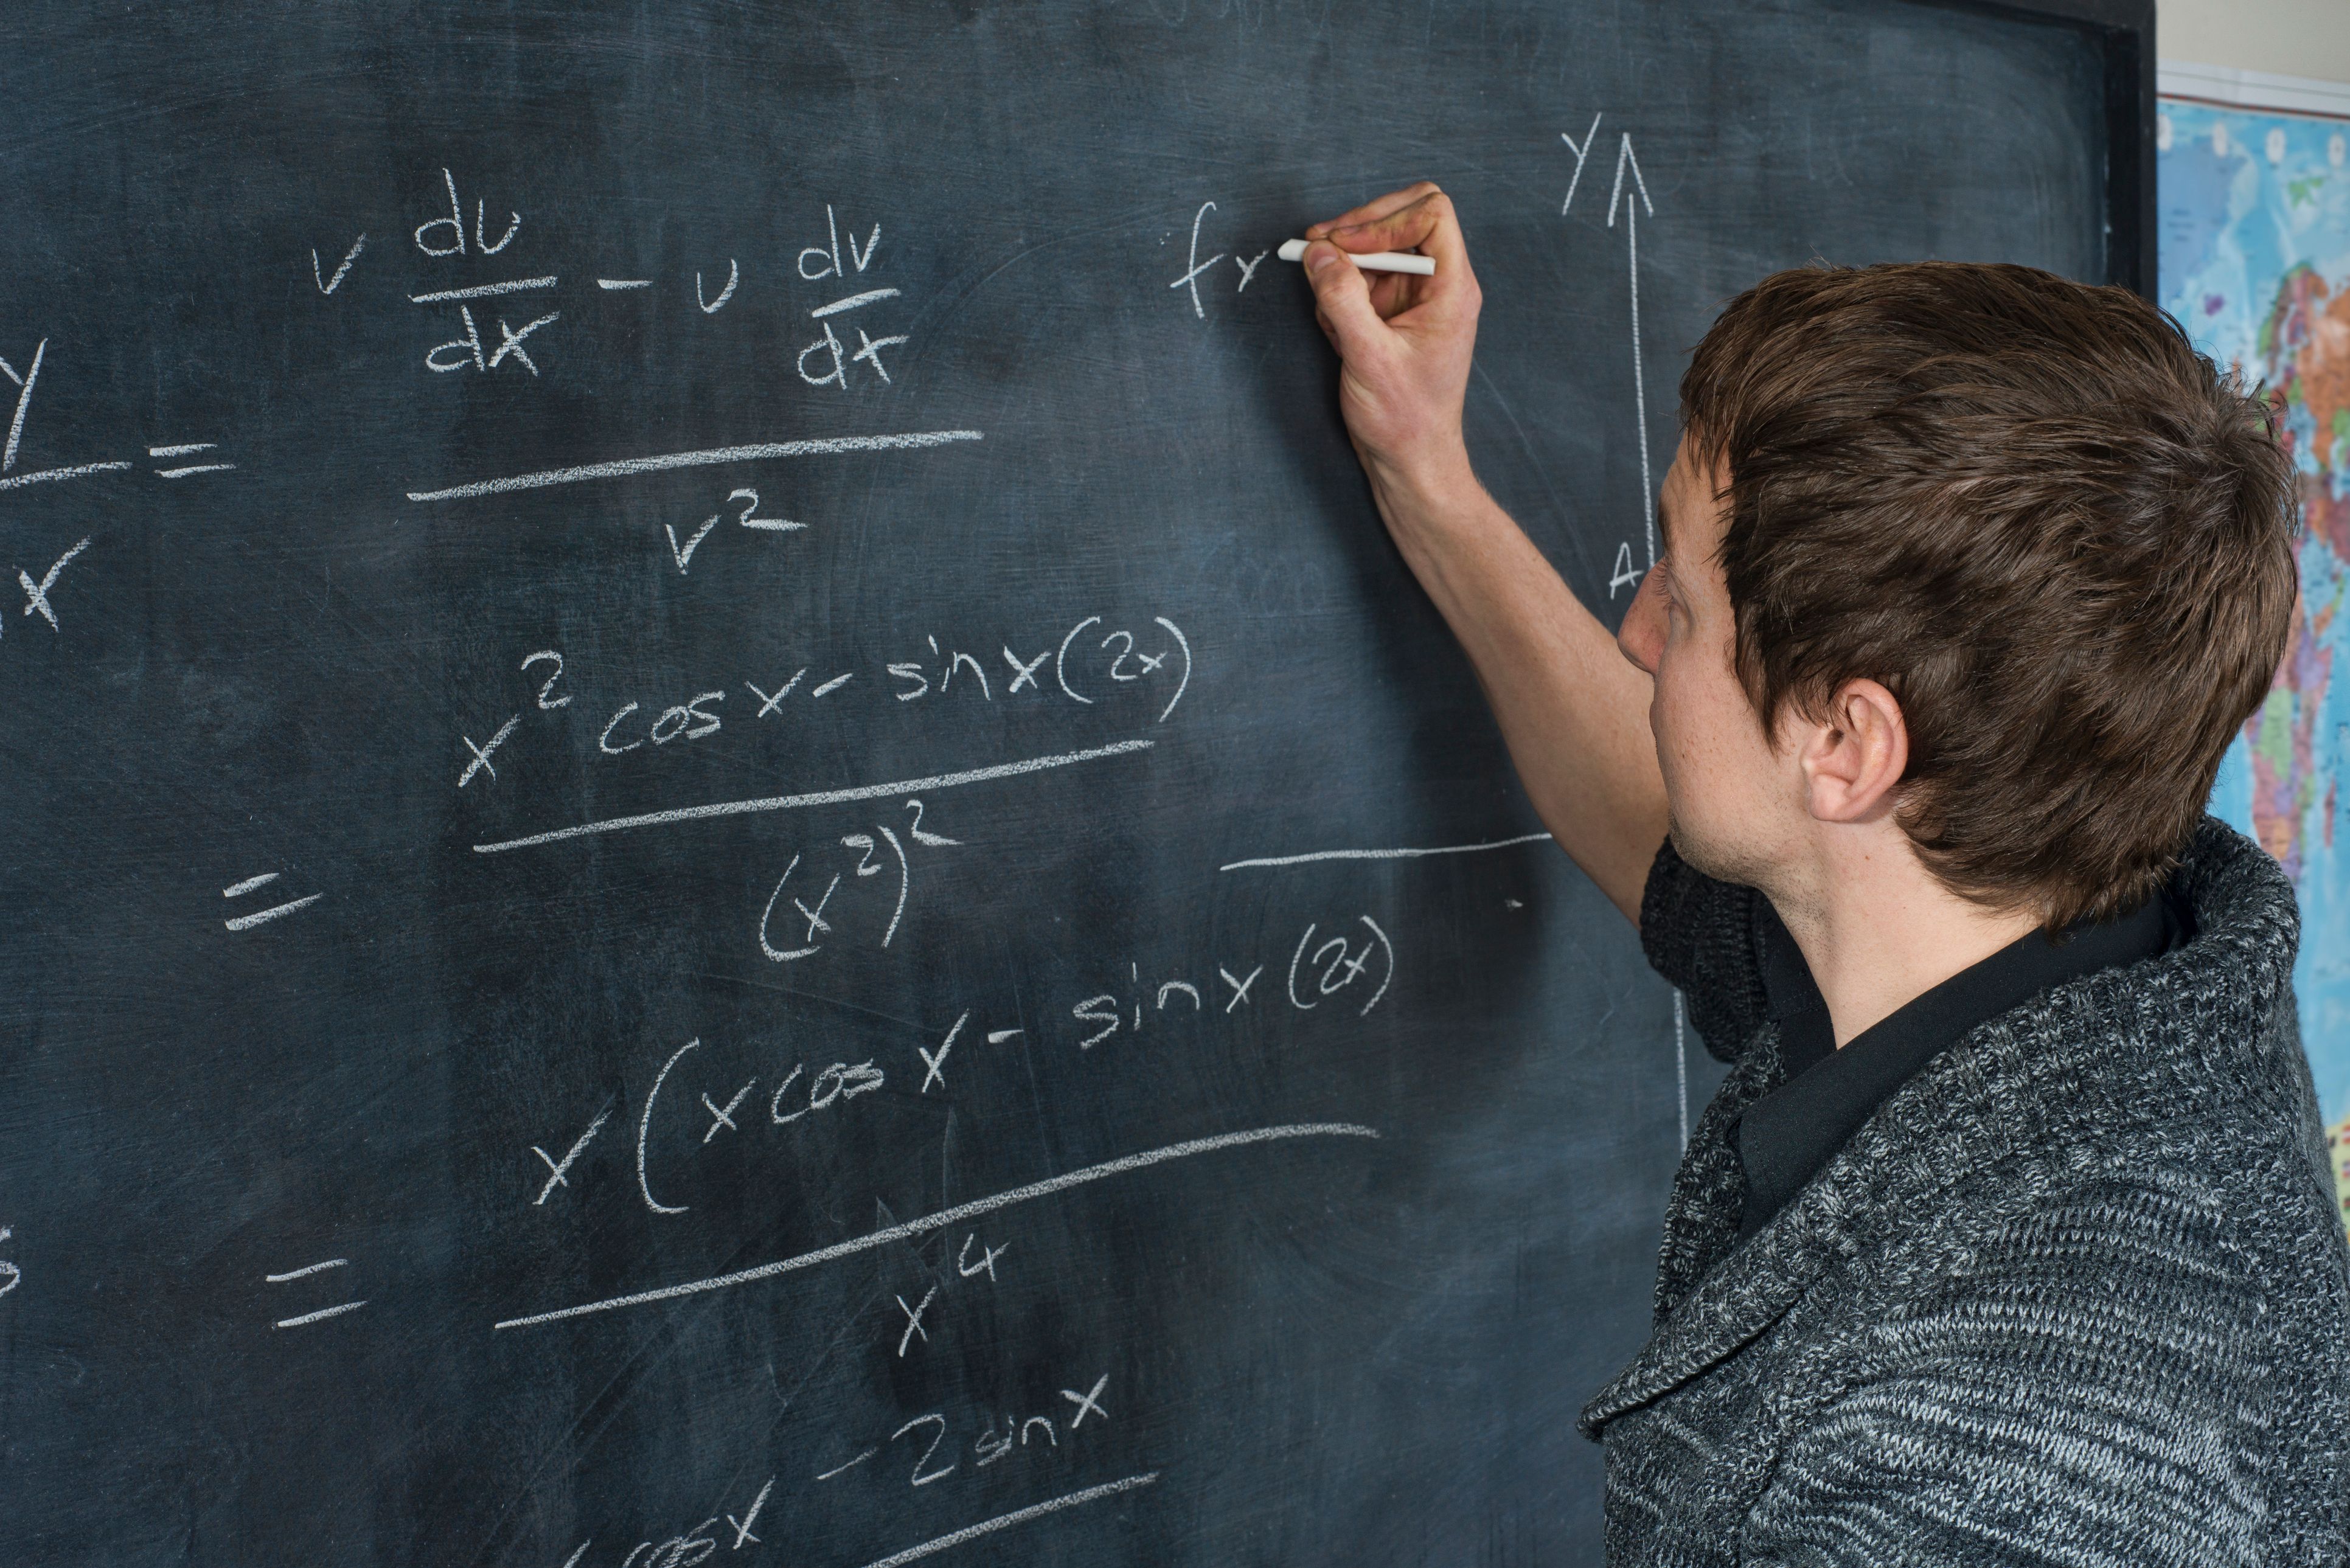 y/x = (v du/dx - u dv/dx)/v²
fx
Y
A
= (x² cos x - sin x (2x))/(x²)²
= x(x cos x - sin x (2x)/x⁴
cos x - 2 sin x